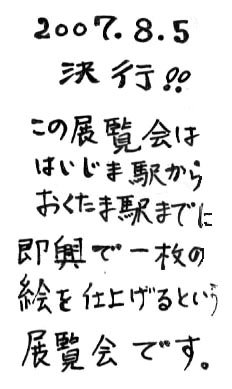 2007.8.5
決行!!
この展覧会は
はいじま駅から
おくたま駅までに
即興で一枚の
絵を仕上げるという
展覧会です。